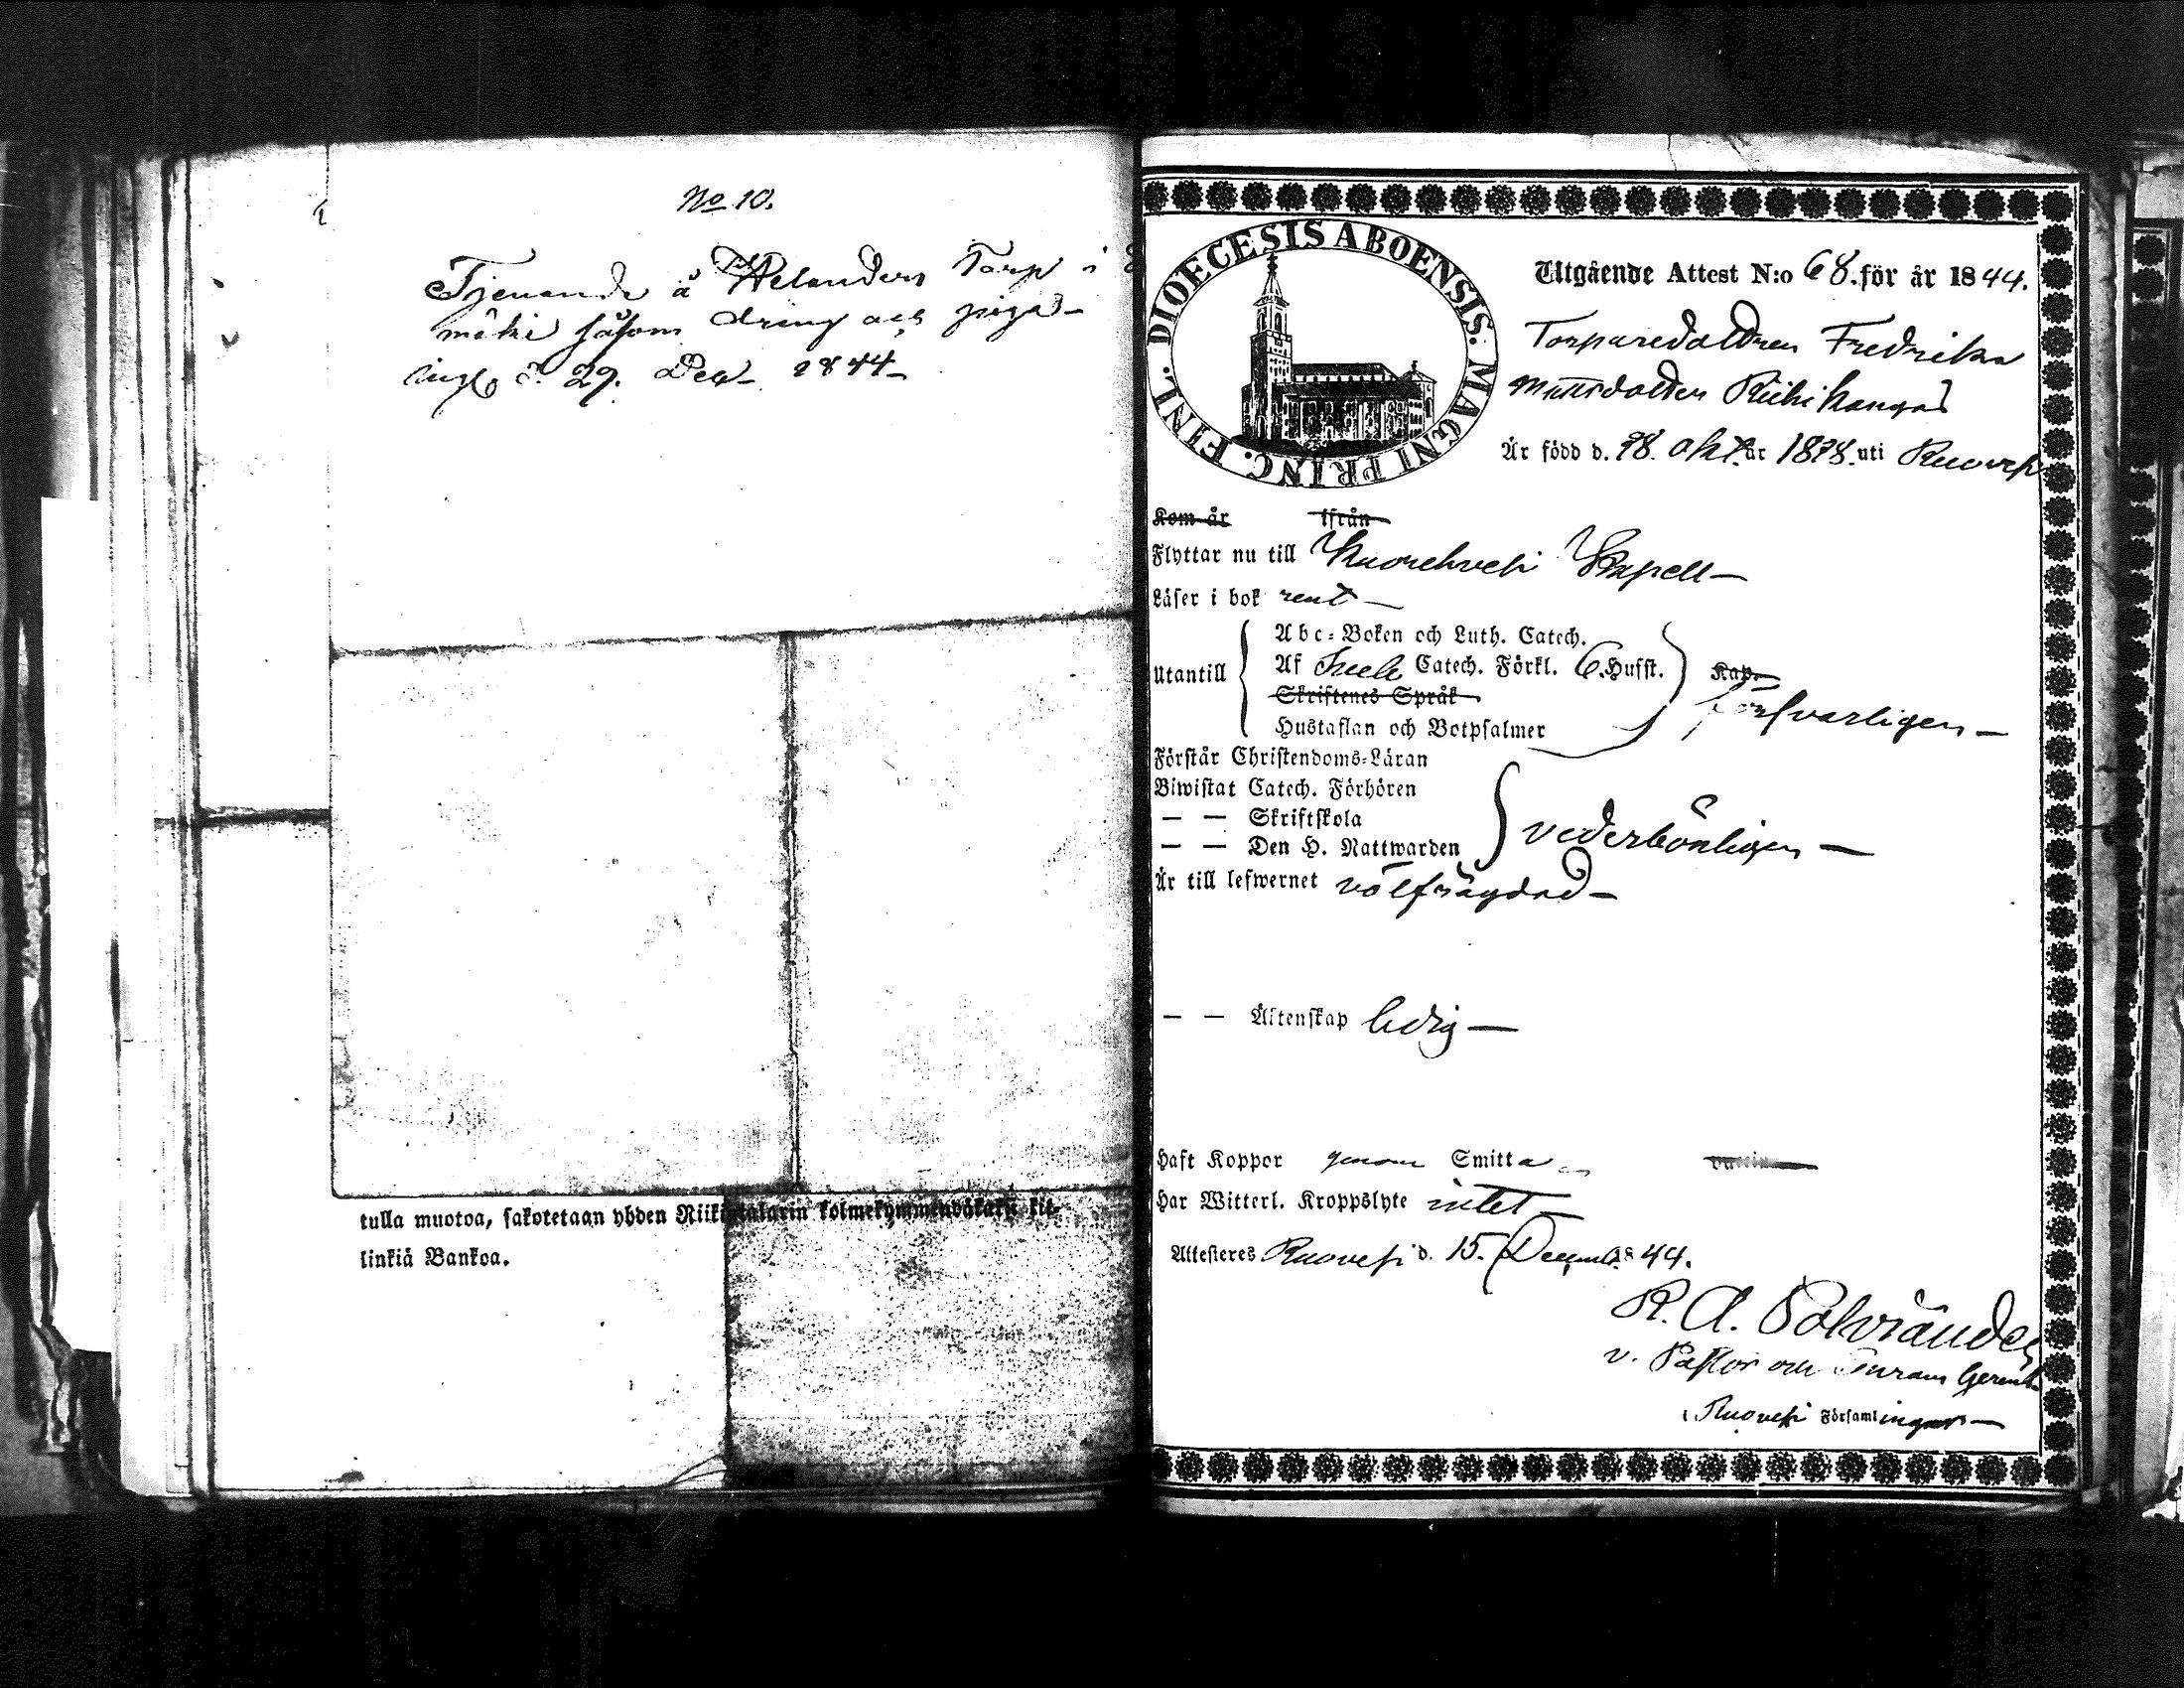 No 10.
Tjenande å Welanders Torp i
mäki såsom dreng och piga
d. 29. Dec 1844
tulla muotoa, sakotetaan yhden Riikintalarin kolmekymmendäkaksi kil-
linkiä Bankoa.
DIOECESIS ABOENSIS. MAGNI PRINC. FINL.
Utgående Attest N:o 68. för år 1844.
Torparedottren Fredrika
Mattsdotter Riihikangas
Är född d. 28. Okt. år 1828. uti Ruovesi
Kom år ifrån
Flyttar nu till Kuorehvesi Kapell
Läser i bok rent
Utantill
Abc-Boken och Luth. Catech.
Af Catech. Förkl. 6. Hufst. Kap.
Skriftenes Språk
Hustaflan och Botpsalmer
försvarligen
Förstår Christendoms-Läran
Biwistat Catech. Förhören
— — Skriftskola
— — Den H. Nattwarden
vederbörligen
Är till lefwernet välfrägdad
— — Äktenskap ledig
Haft Koppor genom Smitta
Har Witterl. Kroppslyte intet
Attesteres Ruovesi d. 15. Decemb. 1844.
R. A. Polviander
v. Pastor
i Ruovesi Församlingar